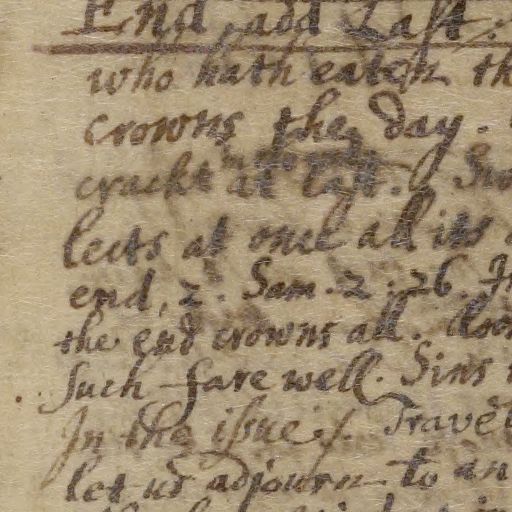 End, add Last.
who hath eaten th
crowns the day.
crackt at last. Sin
lects at once all its
end, 2. Sam. 2. 26. In
the end crowns all.
such farewell. Sins
In the issue. Travel
let us adjourn to an